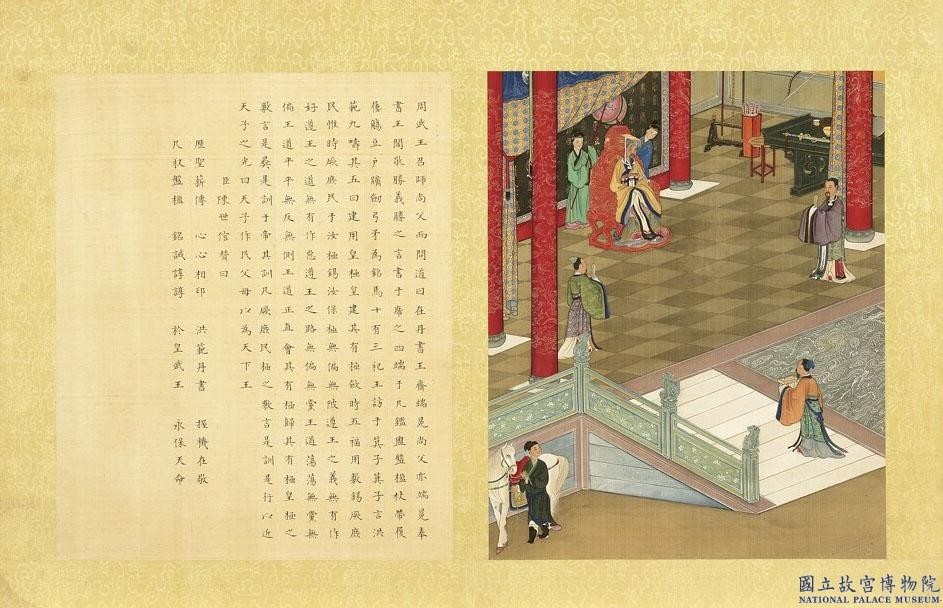 周武王召師尚父而問道曰在丹書王齋端冕尚父亦端冕奉
書王聞敬勝義勝之言書于席之四端于几鑑盥盤楹杖帶履
屨觴豆戶牖劍弓矛為銘焉十有三祀王訪于箕子箕子言洪
範九疇其五曰建用皇極皇建其有極斂時五福用敷錫厥庶
民惟時厥庶民于汝極錫汝保極無偏無陂遵王之義無有作
好遵王之道無有作惡遵王之路無偏無黨王道蕩蕩無黨無
偏王道平平無反無側王道正直會其有極歸其有極皇極之
敷言是彝是訓于帝其訓凡厥庶民極之敷言是訓是行以近
天子之光曰天子作民父母以為天下王
臣陳世倌贊曰
歷聖薪傳 心心相印 洪範丹書 握機在敬
几杖盤楹 銘誡諄諄 於皇武王 永保天命
國立故宮博物院
NATIONAL PALACE MUSEUM